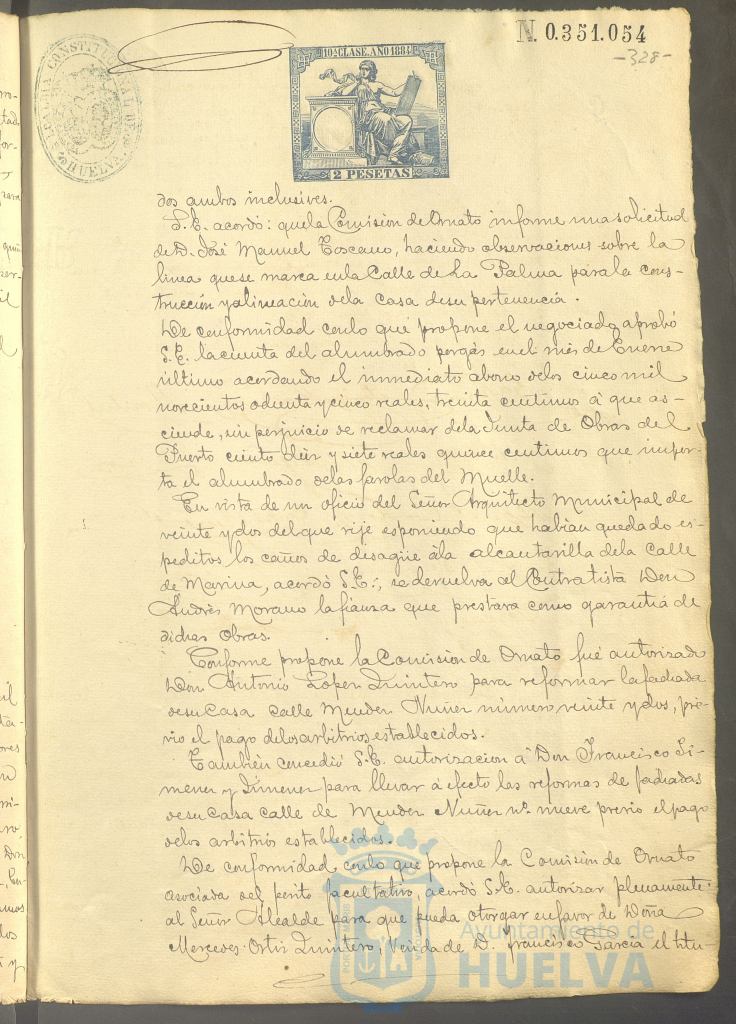 N. 0.351.054
-328-
ALCALDIA CONSTITUCIONAL DE HUELVA
10ª CLASE. AÑO 1884
2 PESETAS
dos ambos inclusives.
S.E. acordó: que la Comision de Ornato informe una solicitud
de D. José Manuel Toscano, haciendo observaciones sobre la
linea que se marca en la Calle de La Palma para la cons-
trucción y alineación de la casa de su pertenencia.
De conformidad con lo que propone el negociado, aprobó
S.E. la cuenta del alumbrado por gas en el mes de Enero
último acordando el inmediato abono de los cinco mil
novecientos ochenta y cinco reales, treinta centimos á que as-
ciende, sin perjuicio de reclamar de la Junta de Obras del
Puerto ciento diez y siete reales quince centimos que impor-
ta el alumbrado de las farolas del Muelle.
En vista de un oficio del Señor Arquitecto Municipal de
veinte y dos del que rije esponiendo que habian quedado es-
peditos los caños de desagüe á la alcantarilla de la calle
de Marina, acordó S.E.: se devuelva al Contratista Don
Andrés Morano la fianza que prestara como garantia de
dichas Obras.
Conforme propone la Comision de Ornato fué autorizado
Don Antonio Lopez Quintero para reformar la fachada
de su Casa calle Mendez Nuñez número veinte y dos, pré-
vio el pago de los arbitrios establecidos.
Tambien concedió S.E. autorizacion á Don Francisco Ji-
menez y Jimenez para llevar á efecto las reformas de fachadas
de su Casa calle de Mendez Nuñez nº. nueve previo el pago
de los arbitrios establecidos.
De conformidad con lo que propone la Comision de Ornato
asociada del perito facultativo, acordó S.E. autorizar plenamente
al Señor Alcalde para que pueda otorgar en favor de Doña
Mercedes Ortiz Quintero, Viuda de D. Francisco Garcia el titu-
Ayuntamiento de
HUELVA